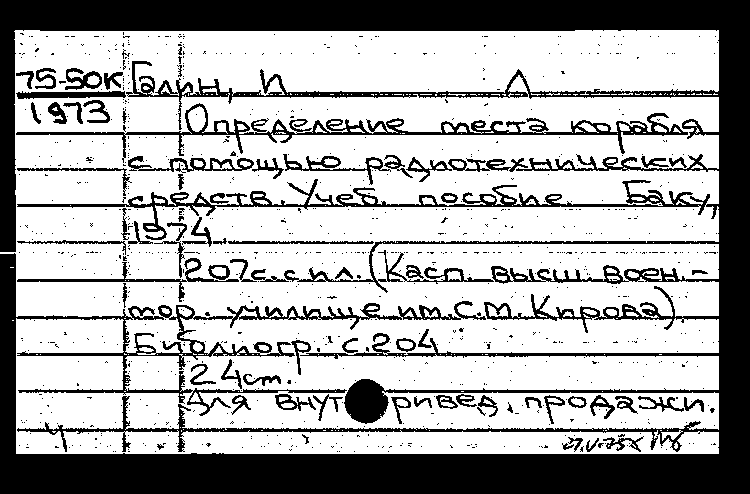 75-50к Галин, И Л
1973
Определение места корабля
с помощью радиотехнических
средств. Учеб. пособие. Баку,
1974.
207с. с ил. (Касп. высш. воен.-
мор. училище им. С.М. Кирова)
Библиогр.: с.204
24 cm.
Для внут ривед. продажи.
ч 27.V.75х